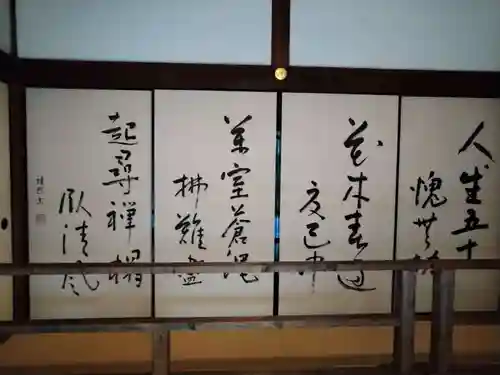 人生五十
愧無功
花木春過
夏已中
萬室蒼蠅
拂難盡
起尋禪榻
臥清風